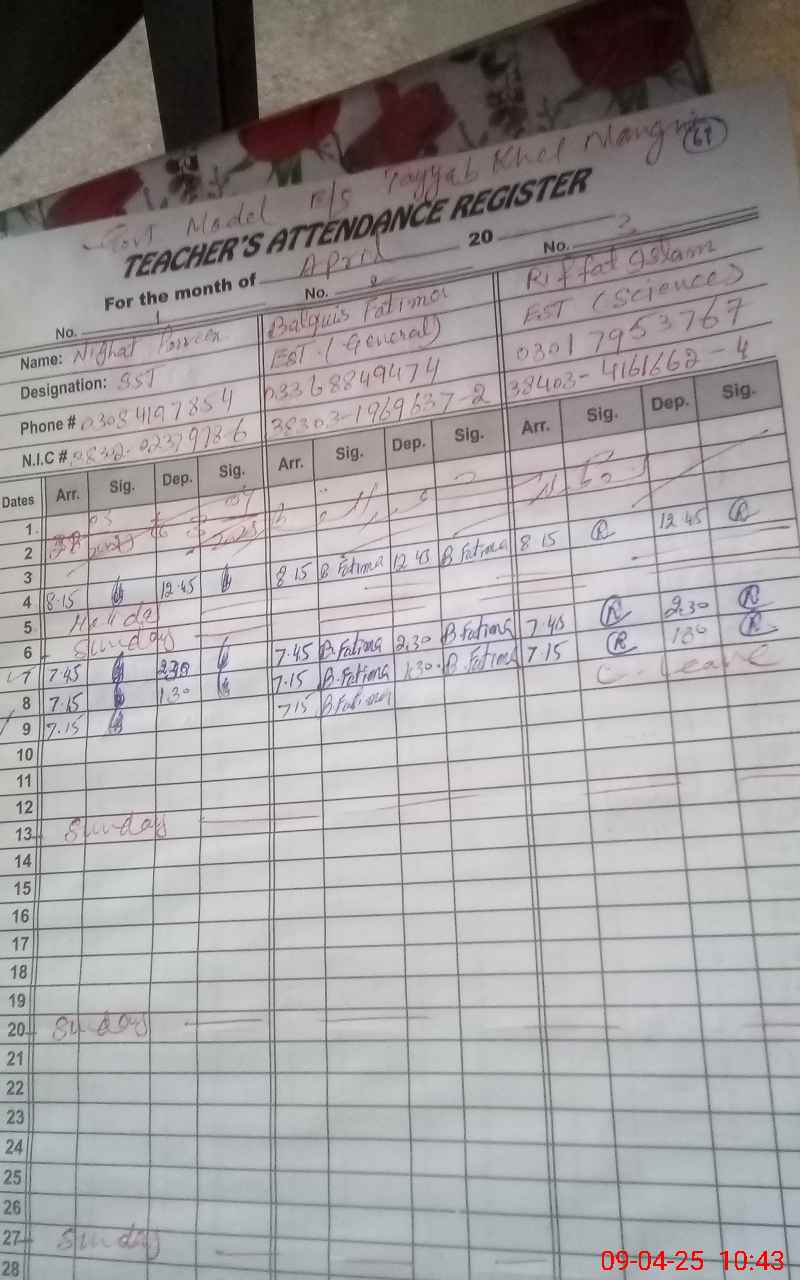 Govt Model E/S Tayyab Khel Mangu 69
TEACHER'S ATTENDANCE REGISTER
For the month of April 20
No. 1 No. 2 No. 3
Name: Nighat Parveen Balquis Fatima Riffat Islam
Designation: SST EST (General) EST (Science)
Phone # 0308 4197854 03368849474 03017953767
N.I.C # 38303-1969637-2 38403-4161662-4
Dates Arr. Sig. Dep. Sig. Arr. Sig. Dep. Sig. Arr. Sig. Dep. Sig.
1
2
3
4 8.15 12.45 8 15 B Fatima 12 45 B Fatima 8 15 R 12 45 R
5 Holiday
6 Sunday
7 7.45 2.30 7.45 B.Fatima 2.30 B.Fatima 7.45 R 2.30 R
8 7.15 1.30 7.15 B.Fatima 1.30 B.Fatima 7.15 R 1.30 R
9 7.15 7 15 B.Fatima C. Leave
10
11
12
13 Sunday
14
15
16
17
18
19
20 Sunday
21
22
23
24
25
26
27 Sunday
28
09-04-25 10:43